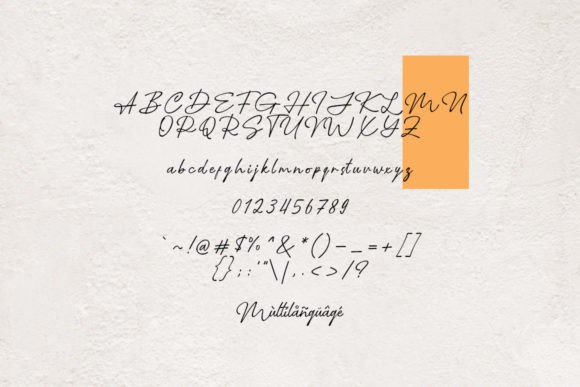 ABCDEFGHIJKLMN
OPQRSTUVWXYZ
abcdefghijklmnopqrstuvwxyz
0123456789
`~!@#$%^&*()-_=+[]
{};:'"\|,.<>/?
Mùltîlåñgüâgé